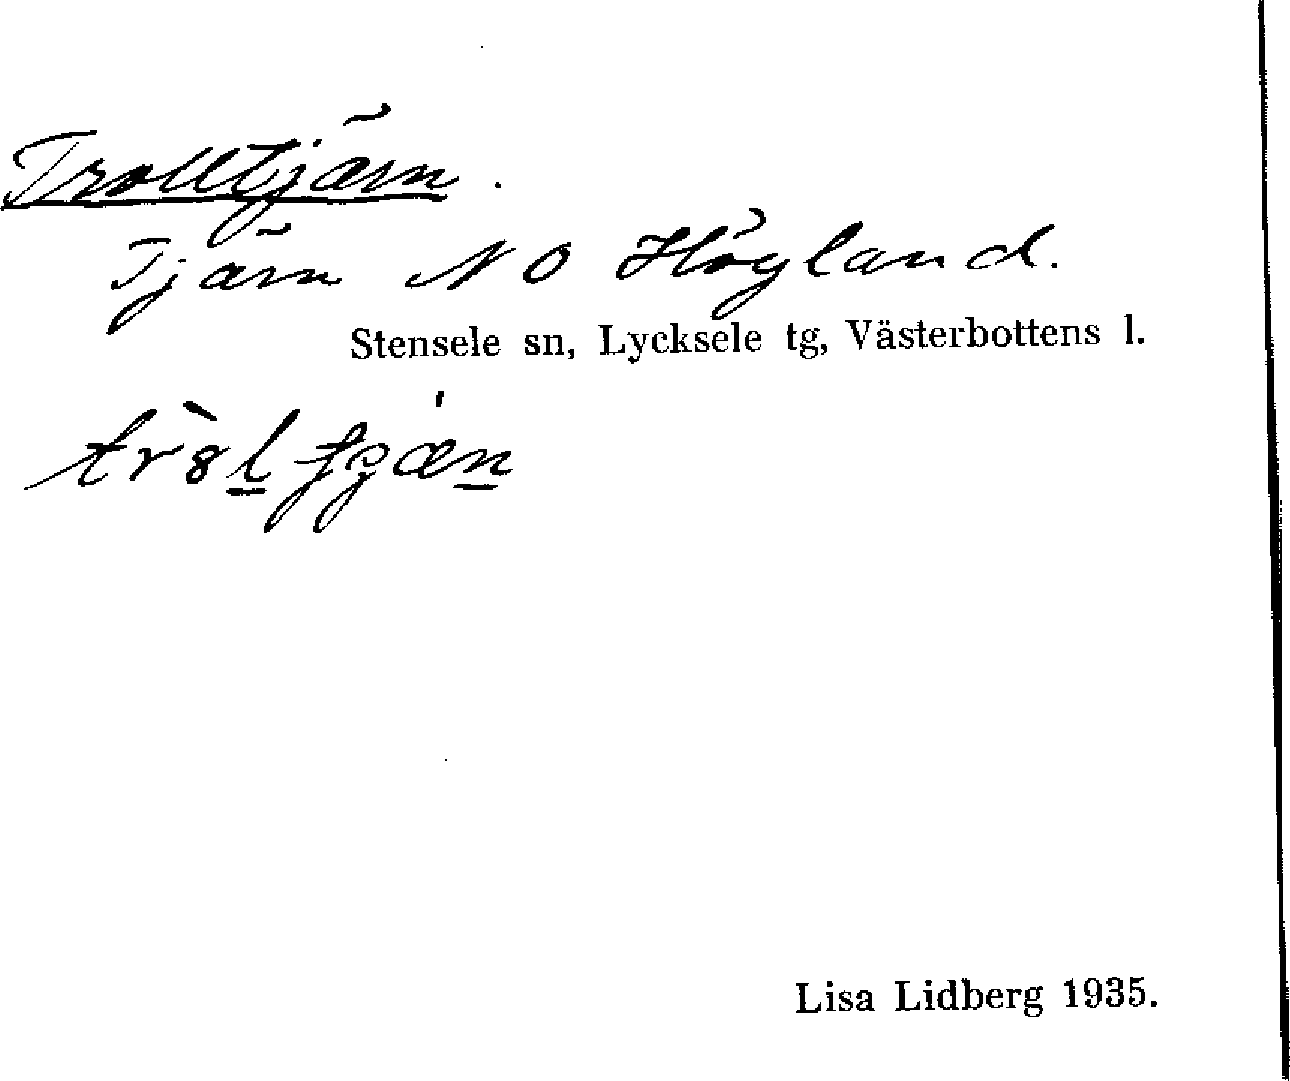 Trolltjärn.
Tjärn NO Högland.
Stensele sn, Lycksele tg, Västerbottens l.
Lisa Lidberg 1935.